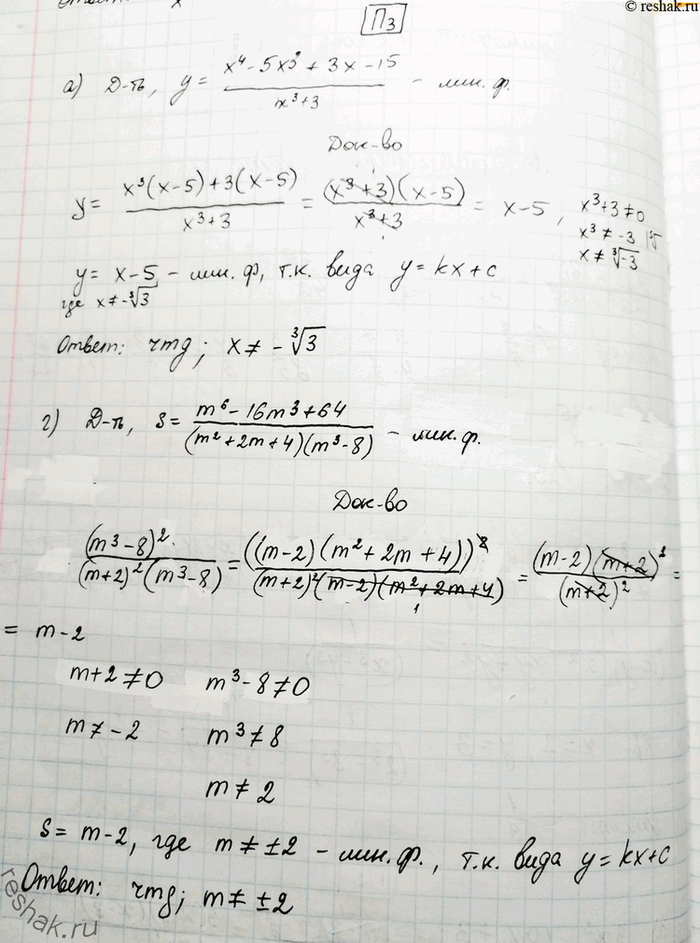 © reshak.ru
П3
а) Д-ть, y = (x⁴ - 5x³ + 3x - 15)/(x³ + 3) - лин. ф.
Док-во
y = (x³(x-5) + 3(x-5))/(x³+3) = ((x³+3)(x-5))/(x³+3) = x-5, x³+3≠0
x³ ≠ -3 | ∛
x ≠ ∛-3
y = x-5 - лин. ф, т.к. вида y = kx+c
где x≠-∛3
Ответ: чтд; x ≠ -∛3
г) Д-ть, s = (m⁶ - 16m³ + 64)/((m² + 2m + 4)(m³ - 8)) - лин. ф.
Док-во
(m³-8)²/((m+2)²(m³-8)) = ((m-2)(m²+2m+4))²/((m+2)²(m-2)(m²+2m+4)) = ((m-2)(m+2)²)/(m+2)² =
= m-2
m+2≠0 m³-8≠0
m≠-2 m³≠8
m≠2
s = m-2, где m≠±2 - лин. ф., т.к. вида y=kx+c
Ответ: чтд; m≠±2
reshak.ru